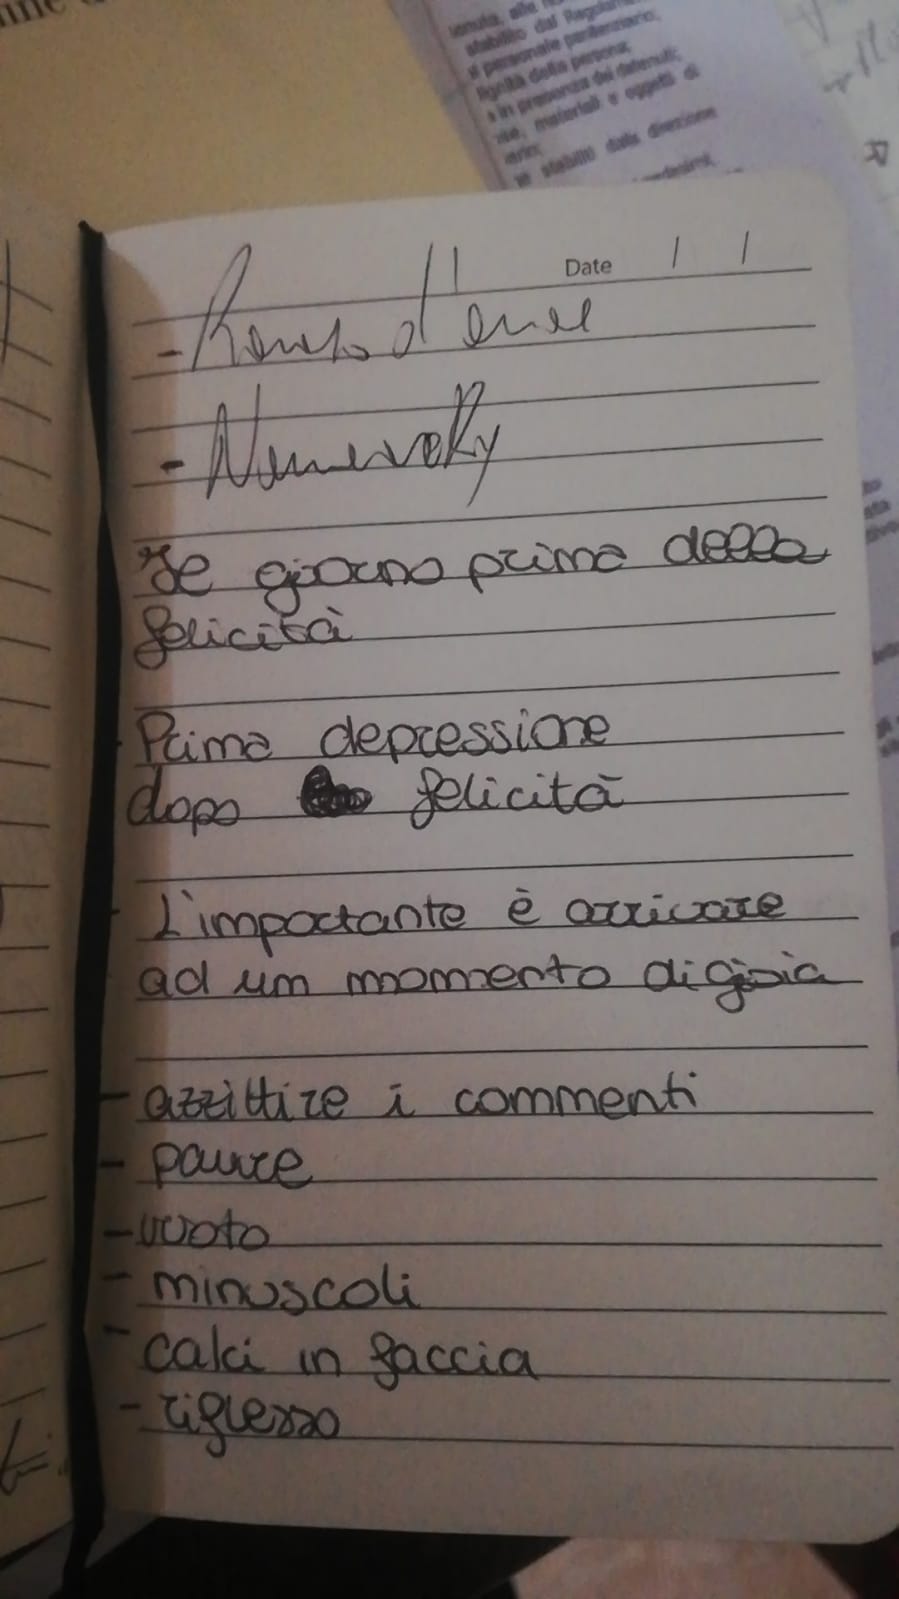 stabilito dal Regolam
personale penitenziario;
della persona;
in presenza dei detenuti;
materiali e oggetti di
stabilito dalla direzione
Date / /
- d'
-
Il giorno prima della
felicità
Prima depressione
dopo felicità
L'importante è arrivare
ad um momento di gioia
- azzittire i commenti
- paure
- vuoto
- minuscoli
- calci in faccia
- riflesso